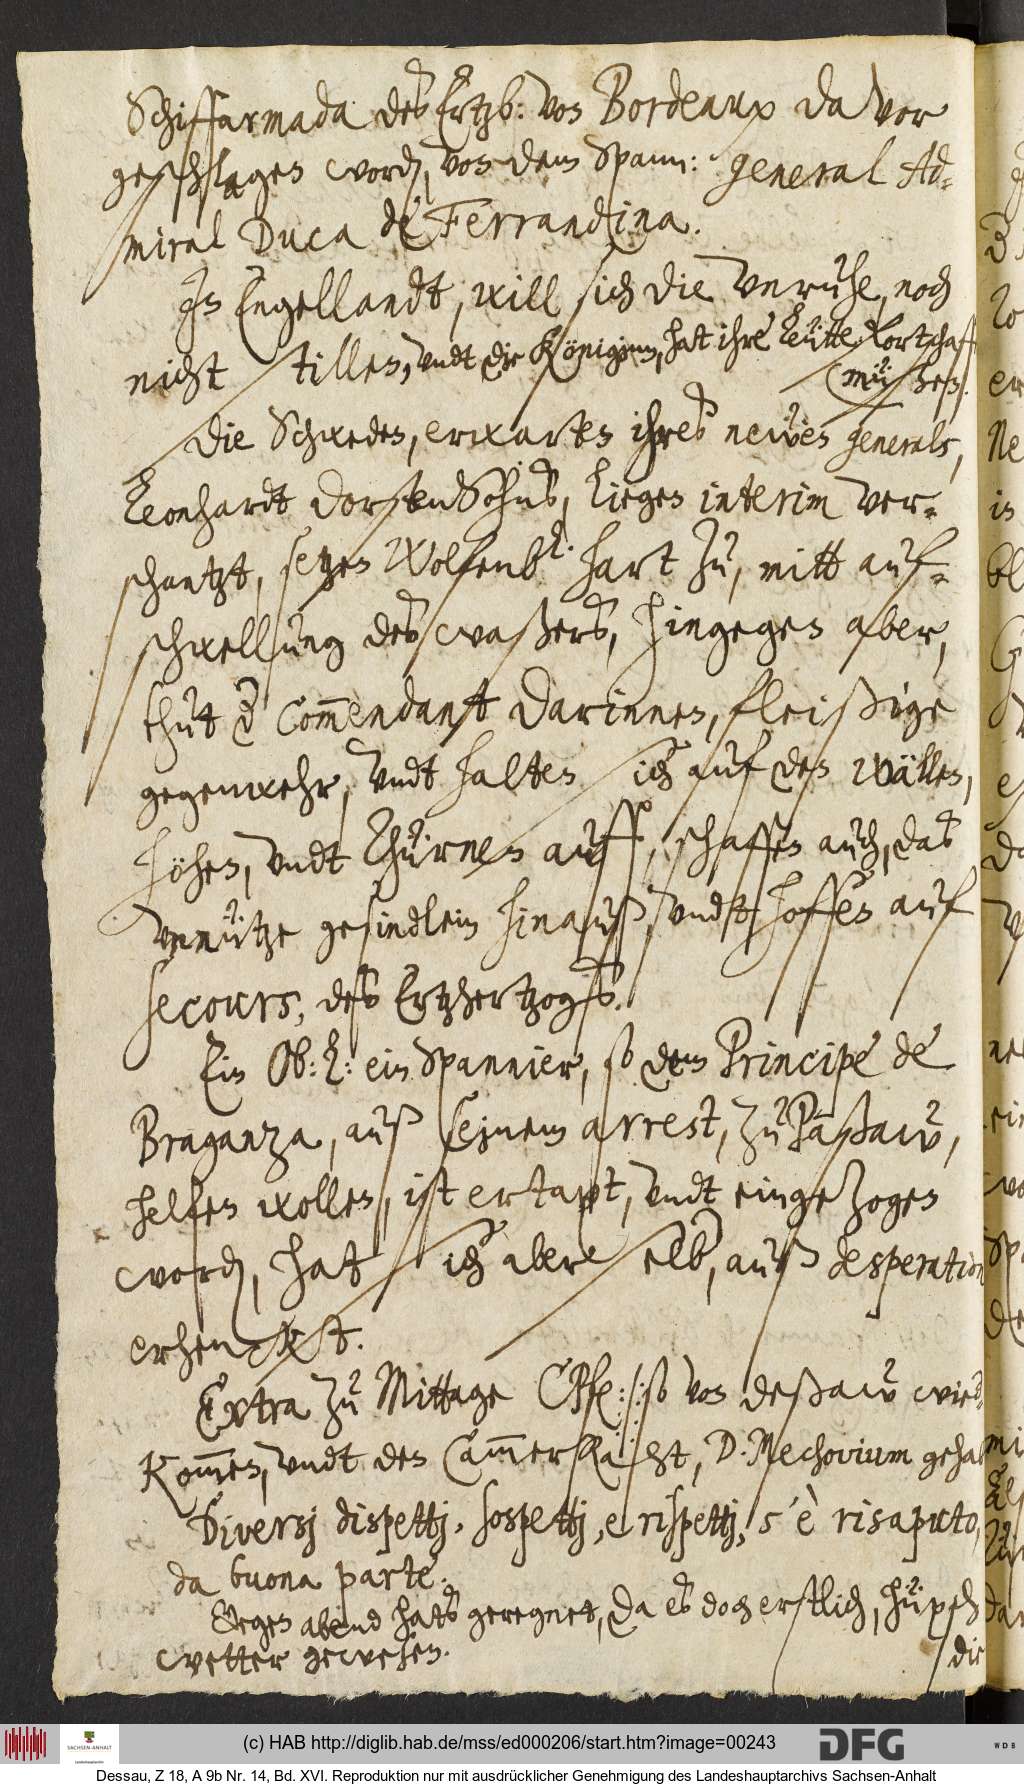 Schiffarmada des Ertzb: von Bordeaux da vor
geschlagen word, von dem Spann: general Ad-
miral Duca de Ferrandina.
In Engellandt, will sich die vnruhe, noch
nicht stillen, vndt die Königinn, hat ihre Leütte fortschaff
müßen.
Die Schweden, erwarten ihres newen generals,
Leonhardt DorstenSohns, Liegen interim ver-
schantzt, setzen Wolfenb: hart zu, mitt auf-
schwellung des waßers, hingegen aber,
thut der Commendant darinnen, fleißige
gegenwehr, vndt halten sich auf den wällen,
höhen, vndt Thürnen auff, schaffen auch, das
vnnütze gesindlein hinauß, vndt hoffen auf
secours, des Ertzhertzogs.
Ein Ob: L: ein Spannier, so dem Principe de
Braganza, auß seinem arrest, zu Paßaw,
helfen wollen, ist ertapt, vndt eingezogen
word, hat sich aber selb, auß desperation
erhenckt.
Extra zu Mittage CPf: so von deßaw wied-
kommen, vndt den CammerRaht, D. Mechovium gehab
Diversj dispettj, sospettj, e rispettj, s'è risaputo,
da buona parte.
Gegen abend hats geregnet, da es doch erstlich, hüpsch
wetter gewesen.
die
(c) HAB http://diglib.hab.de/mss/ed000206/start.htm?image=00243
SACHSEN-ANHALT
DFG
WDB
Dessau, Z 18, A 9b Nr. 14, Bd. XVI. Reproduktion nur mit ausdrücklicher Genehmigung des Landeshauptarchivs Sachsen-Anhalt